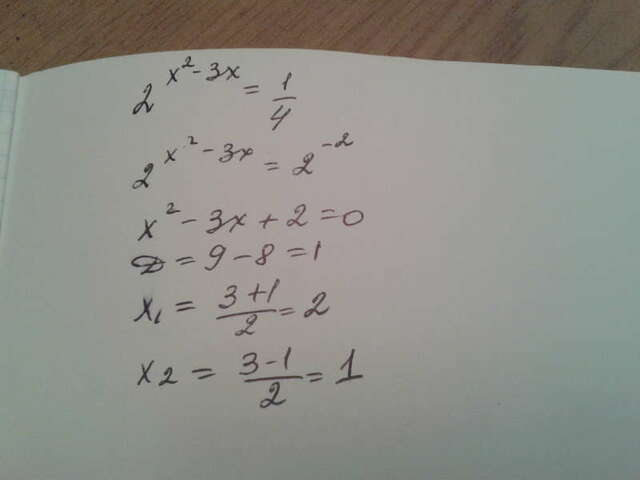 2^(x²-3x) = 1/4
2^(x²-3x) = 2^(-2)
x² - 3x + 2 = 0
D = 9 - 8 = 1
x₁ = (3+1)/2 = 2
x2 = (3-1)/2 = 1